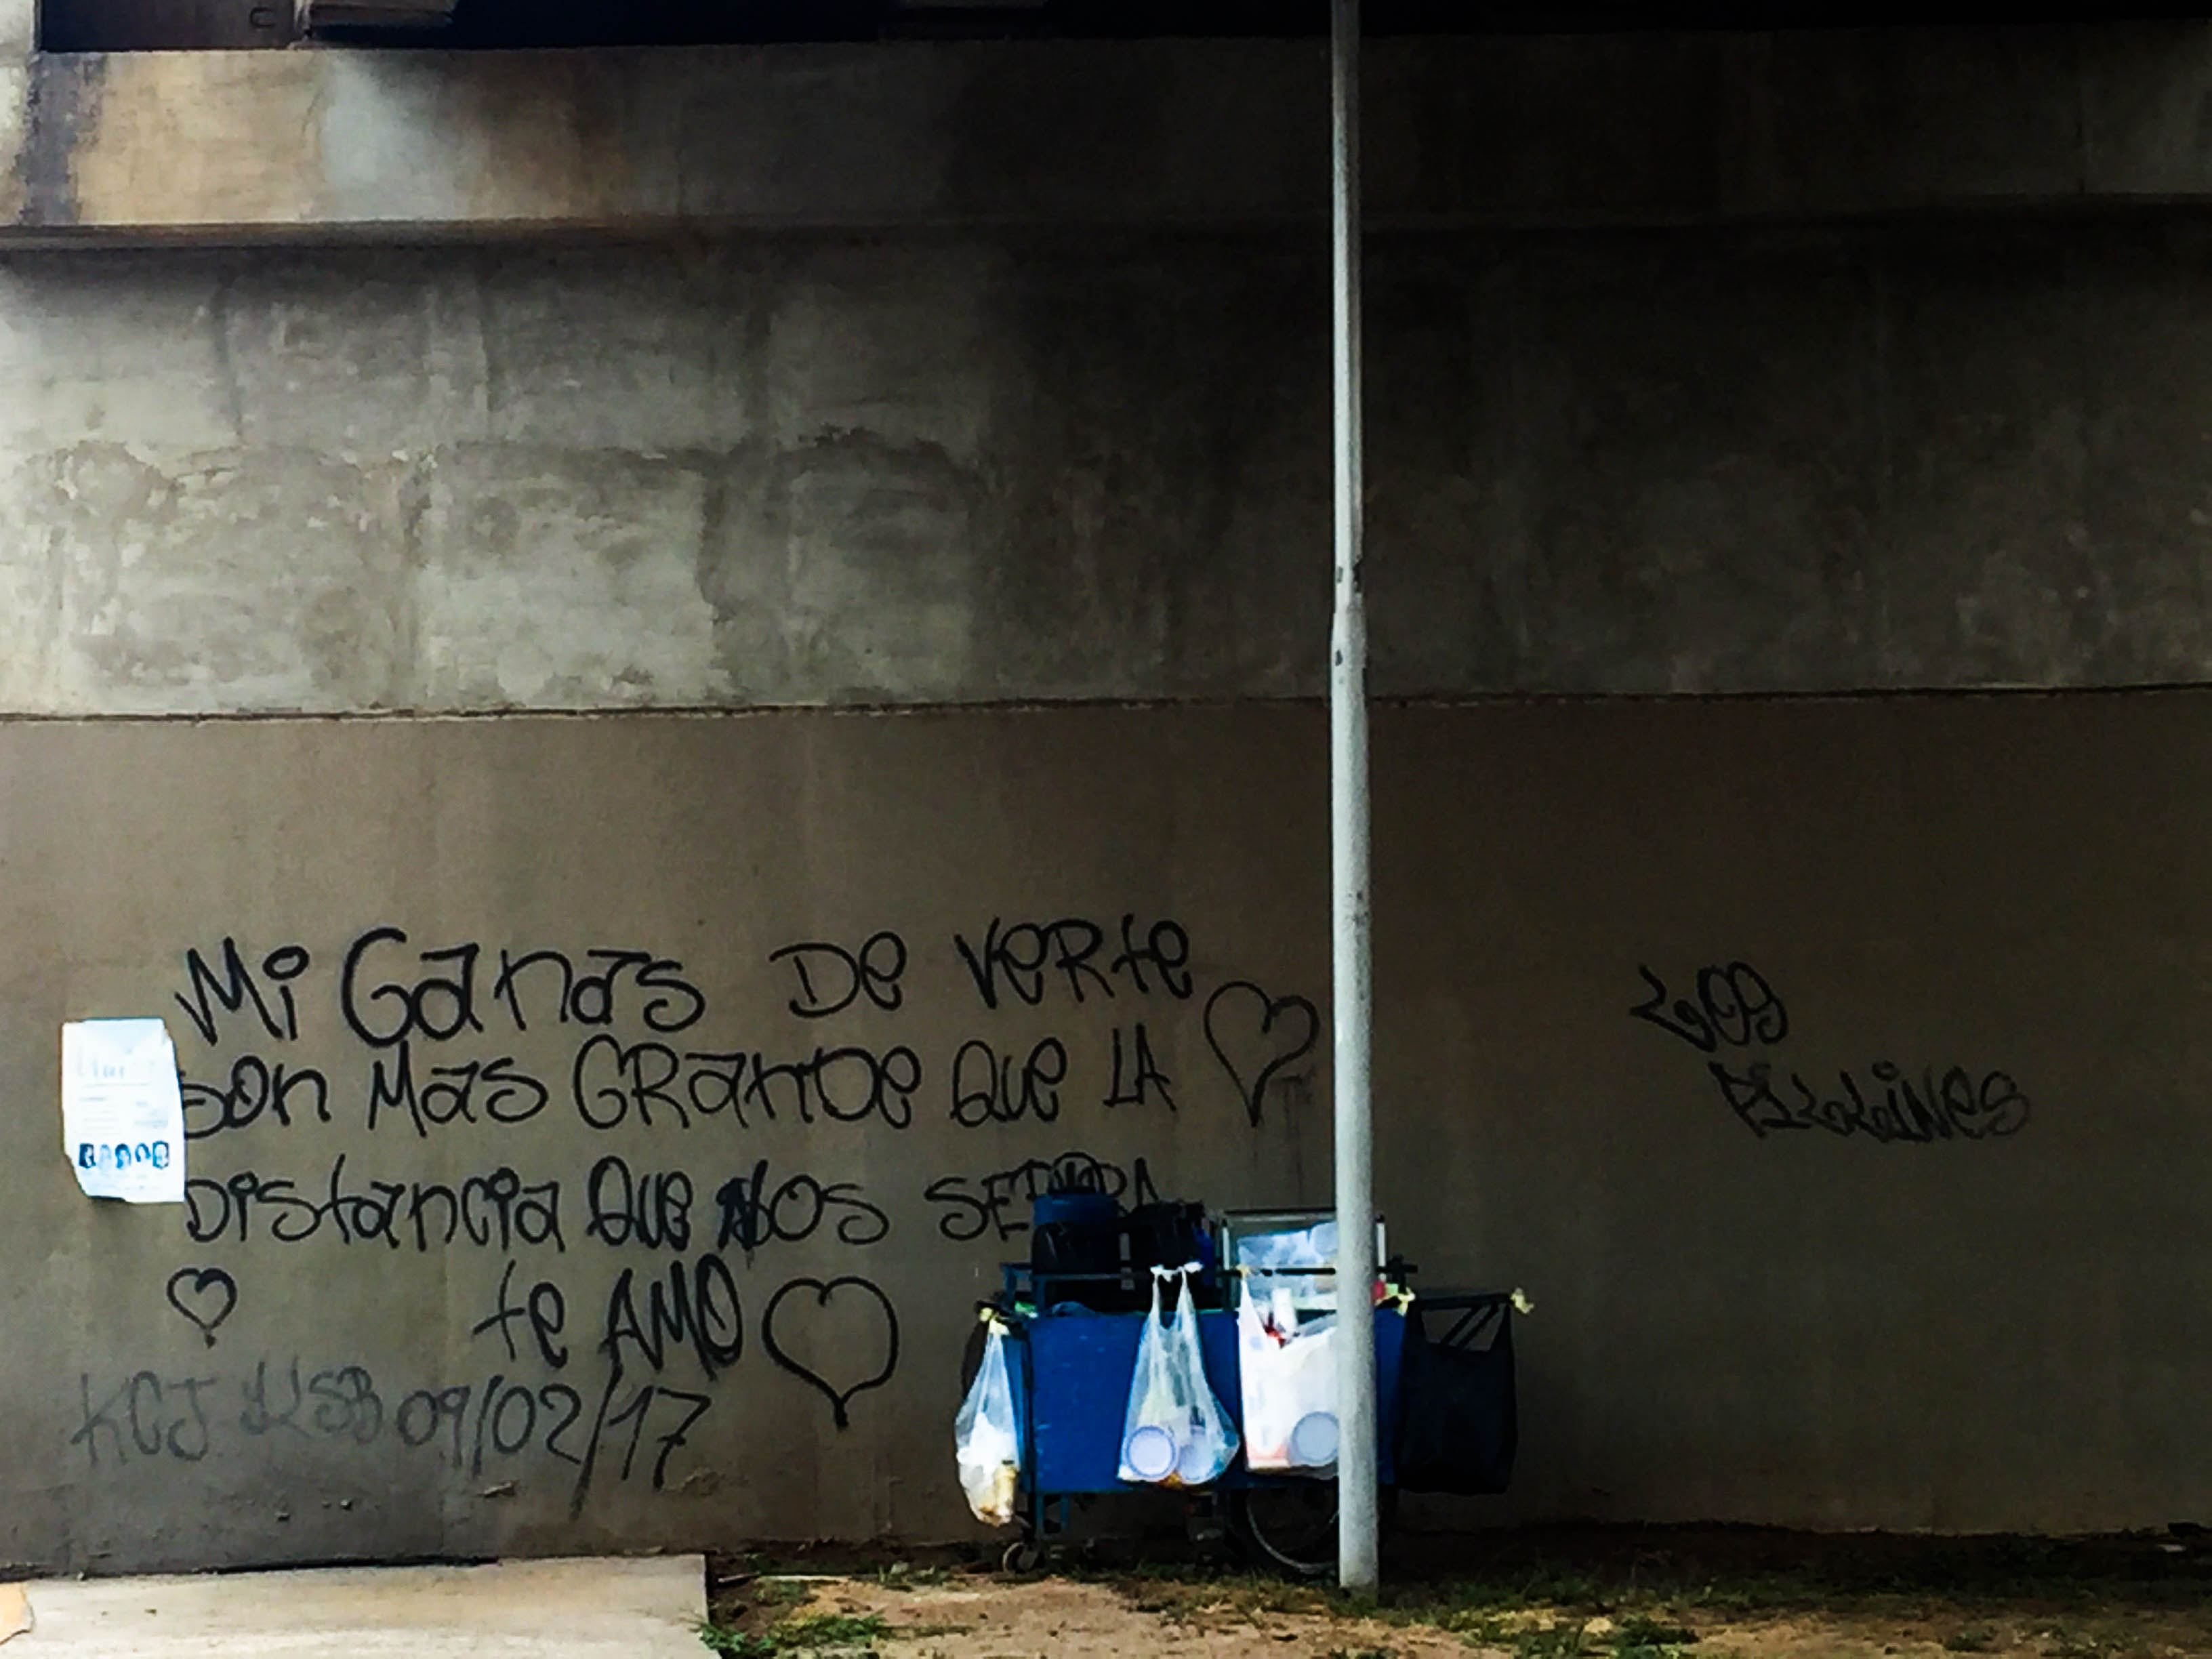 Mi Ganas De Verte
son Mas GRanDe Que LA
Distancia Que Nos
te AMO
KCJ 09/02/17
LOS
PiLLiNes